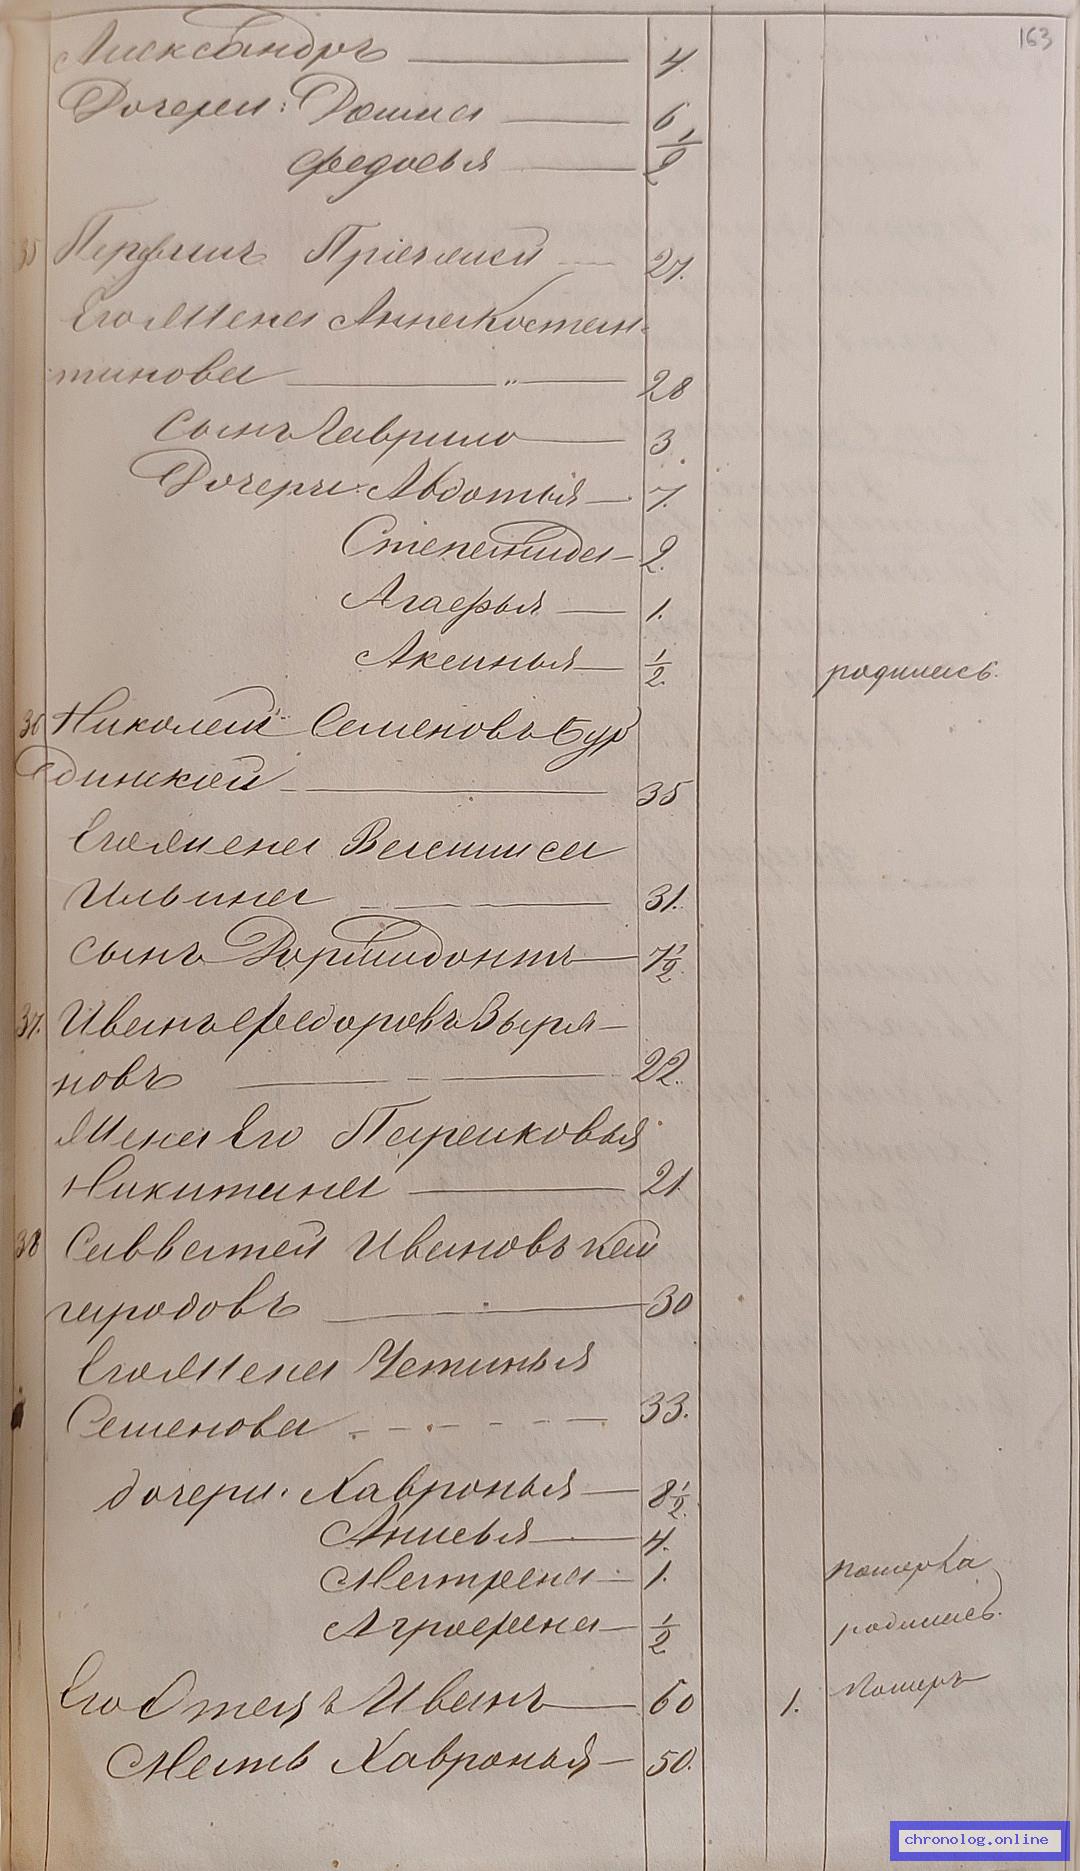 163
Александръ 4.
Дочери: Домна 6
Федосья 1/2
35 Перфилъ 27.
Его Жена Анна Костан-
тинова " 28
Сынъ Гаврило 3.
Дочери: Авдотья 7.
Степанида 2.
Агафья 1.
Аксинья 1/2. родилась.
36 Николай Семеновъ Бур
динской 35
Его Жена Василиса
Ильина 31.
Сынъ Дормидонтъ 7 1/2.
37. Иванъ Федоровъ Зыря-
новъ 22.
Жена Его Парасковья
Никитина 21
38 Савватей Ивановъ Кай
городовъ 30
Его Жена Устинья
Семенова 33.
дочери: Хавронья 8 1/2.
Анисья 4.
Матрена 1. померла
Аграфена 1/2 родилась.
Его Отецъ Иванъ 60 1. Померъ
Мать Хавронья 50.
chronolog.online